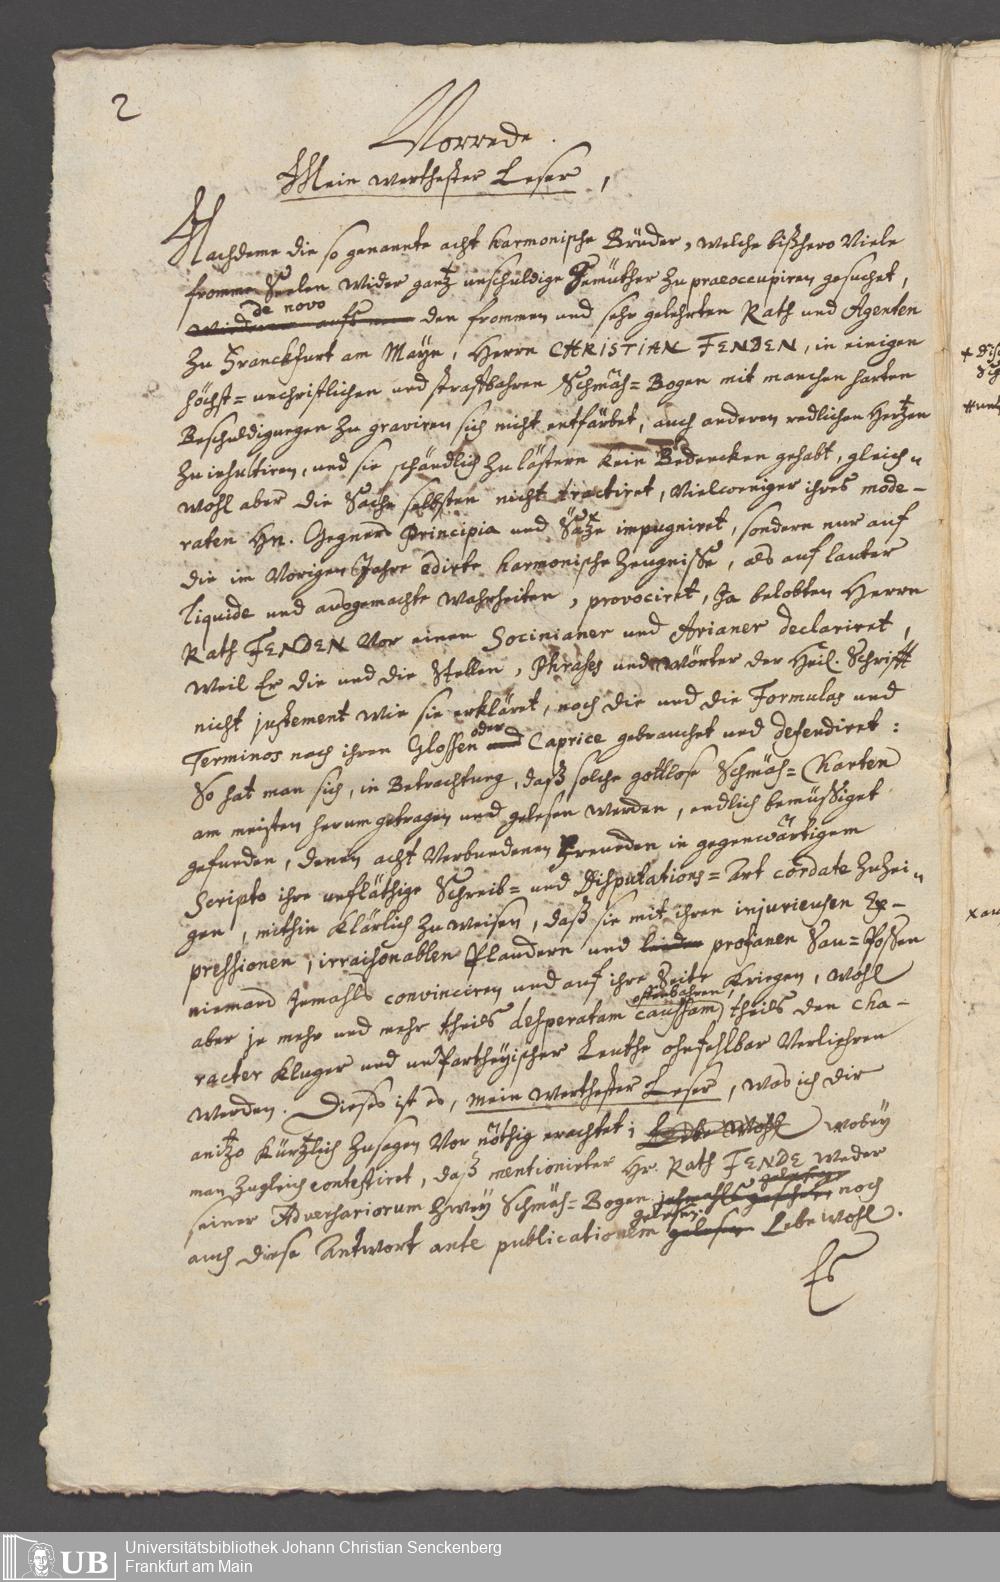 2
Vorrede.
Mein werthester Leser,
Nachdeme die so genannte acht harmonische Brüder, welche bißhero Viele
fromme Seelen wider gantz unschuldige Gemüther zu praeoccupiren gesuchet,
de novo
den frommen und sehr gelehrten Rath und Agenten
zu Franckfurt am Mayn, Herrn CHRISTIAN FENDEN, in einigen
höchst=unchristlichen und straffbahren Schmäh=Bogen mit manchen harten
Beschuldigungen zu graviren sich nicht entfärbet, auch anderen redlichen Hertzen
zu insultiren, und sie schändlich zu lästern kein Bedencken gehabt, gleich=
wohl aber die Sache selbsten nicht tractiret, Vielweniger ihres mode-
raten Hn. Gegners Principia und Sätze impugniret, sondern nur auf
die im Vorigen Jahre edirte harmonische Zeugnisse, als auf lauter
liquide und ausgemachte Wahrheiten, provociret, Ja belobten Herrn
Rath FENDEN Vor einen Socinianer und Arianer declariret,
weil Er die und die Stellen, Phrases und Wörter der Heil. Schrifft
nicht justement wie sie erkläret, noch die und die Formulas und
Terminos nach ihren Glossen und oder Caprice gebrauchet und defendiret:
So hat man sich, in Betrachtung, daß solche gottlose Schmäh=Charten
am meisten herum getragen und gelesen werden, endlich bemüssiget
gefunden, denen acht Verbundenen Freunden in gegenwärtigem
Scripto ihre unfläthige Schreib= und Disputations=Art cordate zuzei=
gen, mithin klärlich zu weisen, daß sie mit ihren injurieusen Ex-
pressionen, irraisonablen Plaudern und profanen Sau=Possen
niemand jemahls convinciren und auf ihre Seite kriegen, wohl
aber je mehr und mehr theils desperatam offenbahren caussam, theils den Cha-
racter kluger und unPartheyischer Leuthe ohnfehlbar Verliehren
werden. Dieses ist es, mein werthester Leser, was ich dir
anitzo kürtzlich zusagen Vor nöthig erachtet; Lebe wohl wobey
man zugleich contestiret, daß mentionirter Hr. Rath FENDE weder
seiner Adversariorum Zwey Schmäh=Bogen jehmahls gesehen noch
gelesen
auch diese Antwort ante publicationem gelesen. Lebe wohl.
Es